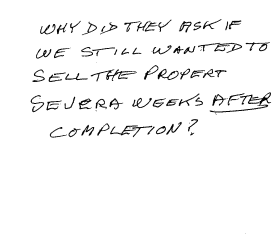 WHY DID THEY ASK IF
WE STILL WANTED TO
SELL THE PROPERT
SEVERA WEEKS AFTER
COMPLETION?